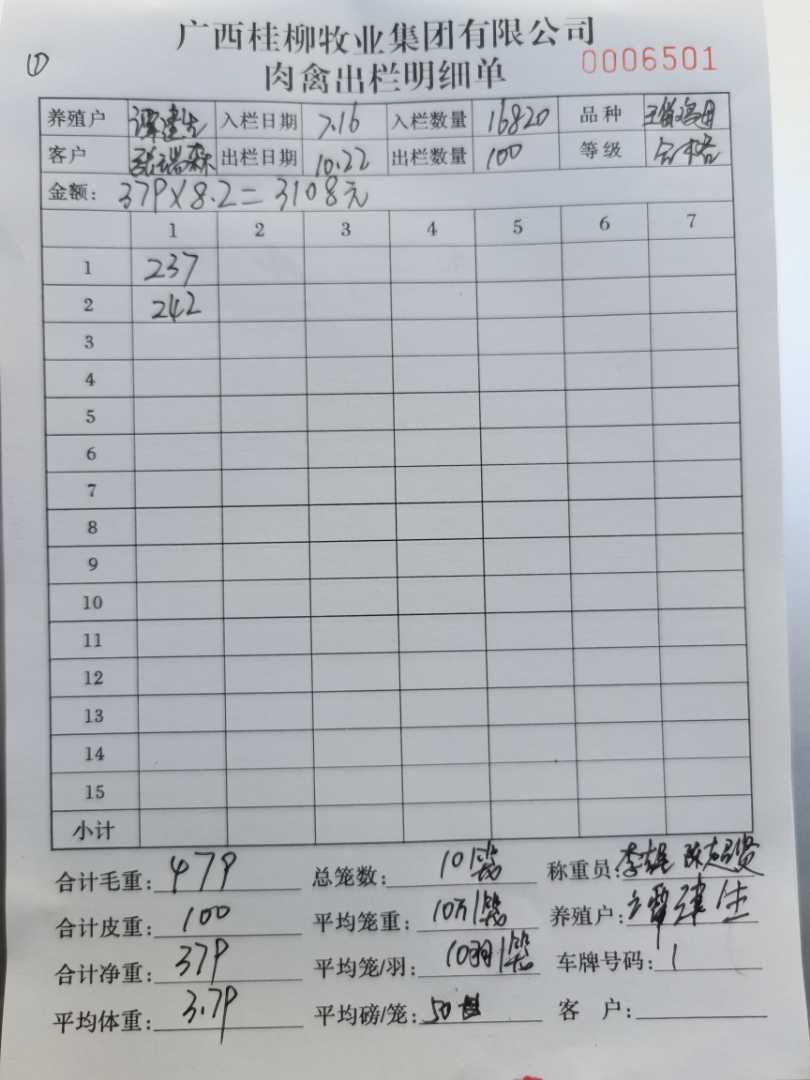 ①
广西桂柳牧业集团有限公司
肉禽出栏明细单 0006501
养殖户 谭建生 入栏日期 7.16 入栏数量 16820 品种
客户 张瑞森 出栏日期 10.22 出栏数量 100 等级 合格
金额: 379×8.2=3108元
1 2 3 4 5 6 7
1 237
2 242
3
4
5
6
7
8
9
10
11
12
13
14
15
小计
合计毛重: 479 总笼数: 10笼 称重员:
合计皮重: 100 平均笼重: 养殖户: 谭建生
合计净重: 379 平均笼/羽: 10羽/笼 车牌号码: 1
平均体重: 3.79 平均磅/笼: 50 客 户: